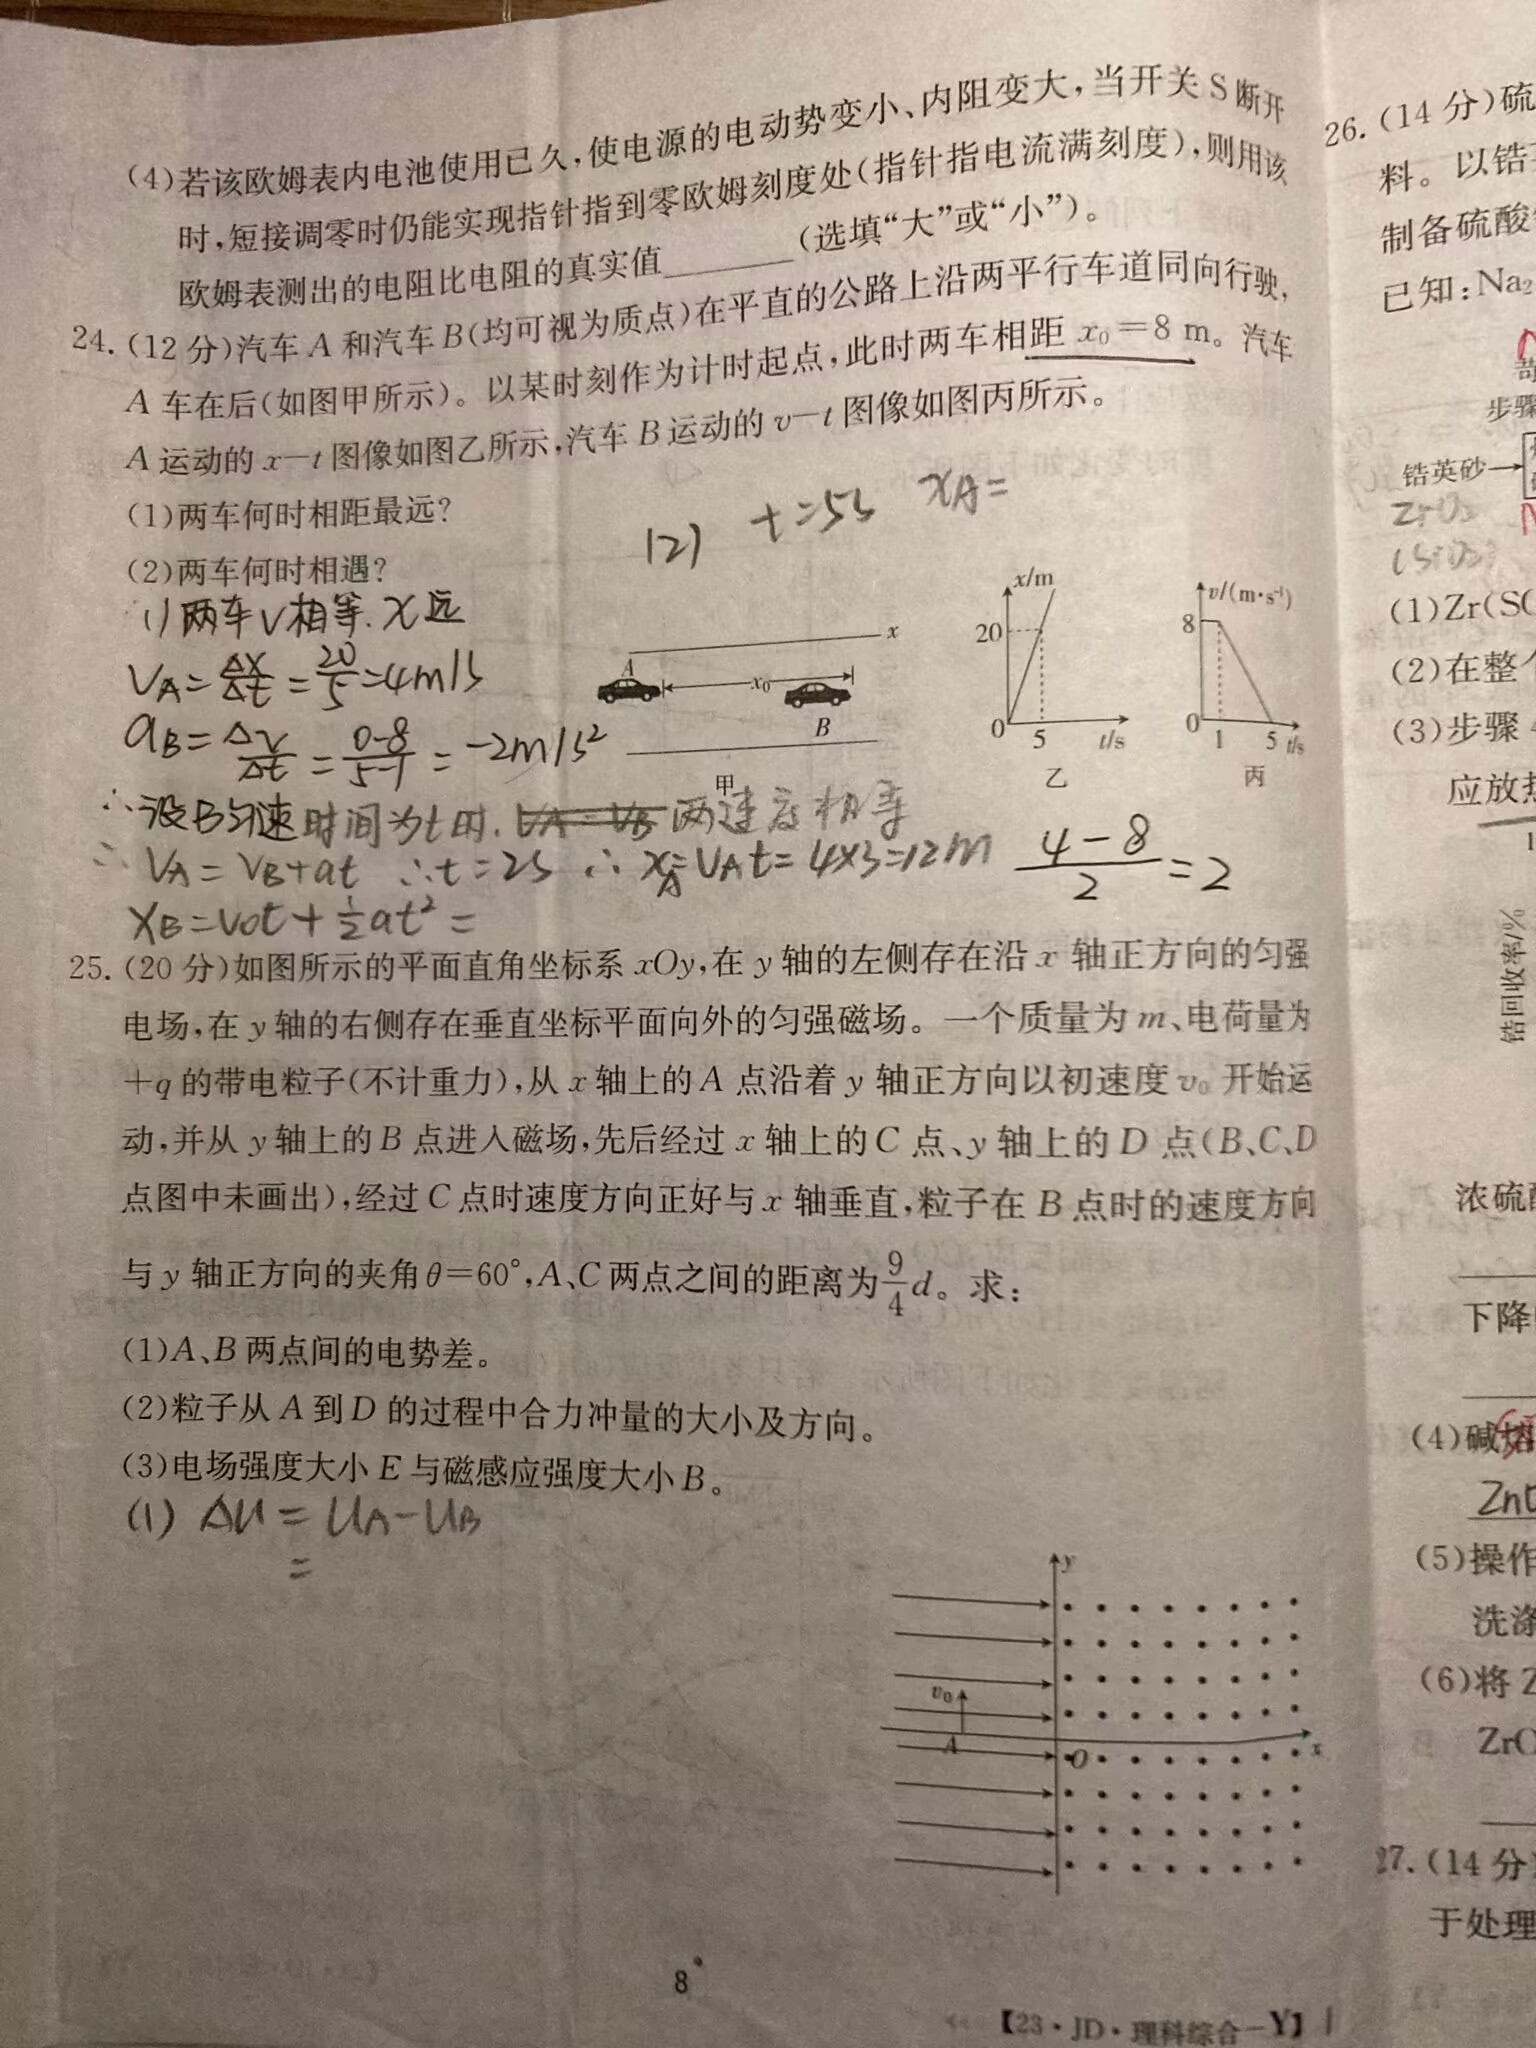 (4)若该欧姆表内电池使用已久,使电源的电动势变小、内阻变大,当开关S断开
时,短接调零时仍能实现指针指到零欧姆刻度处(指针指电流满刻度),则用该
欧姆表测出的电阻比电阻的真实值______(选填“大”或“小”)。
24.(12分)汽车A和汽车B(均可视为质点)在平直的公路上沿两平行车道同向行驶,
A车在后(如图甲所示)。以某时刻作为计时起点,此时两车相距x₀=8 m。汽车
A运动的x-t图像如图乙所示,汽车B运动的v-t图像如图丙所示。
(1)两车何时相距最远?
(2)两车何时相遇?
(2) t=5s xA=
1)两车V相等.X远
VA=Δx/Δt=20/5=4m/s
aB=Δv/Δt=0-8/5-1=-2m/s²
A
x₀
B
x
甲
x/m
20
0
5
t/s
乙
v/(m·s⁻¹)
8
0
1
5
t/s
丙
∴设B匀速时间为t时. VA=VB 两速度相等
∴VA=VB+at ∴t=2s ∴xA=VAt=4×3=12m
4-8/2=2
XB=V0t+½at²=
25.(20分)如图所示的平面直角坐标系xOy,在y轴的左侧存在沿x轴正方向的匀强
电场,在y轴的右侧存在垂直坐标平面向外的匀强磁场。一个质量为m、电荷量为
+q的带电粒子(不计重力),从x轴上的A点沿着y轴正方向以初速度v₀开始运
动,并从y轴上的B点进入磁场,先后经过x轴上的C点、y轴上的D点(B、C、D
点图中未画出),经过C点时速度方向正好与x轴垂直,粒子在B点时的速度方向
与y轴正方向的夹角θ=60°,A、C两点之间的距离为9/4d。求:
(1)A、B两点间的电势差。
(2)粒子从A到D的过程中合力冲量的大小及方向。
(3)电场强度大小E与磁感应强度大小B。
(1) ΔU=UA-UB
=
y
v₀
A
O
x
8
【23·JD·理科综合-Y】
26.(14分)硫
料。以锆
制备硫酸
已知:Na₂
步骤
锆英砂→
ZrO₂
(SiO₂)
(1)Zr(SO
(2)在整个
(3)步骤4
应放热
锆回收率/%
浓硫酸
下降
(4)碱熔
ZnO
(5)操作
洗涤
(6)将Z
ZrO
27.(14分)
于处理